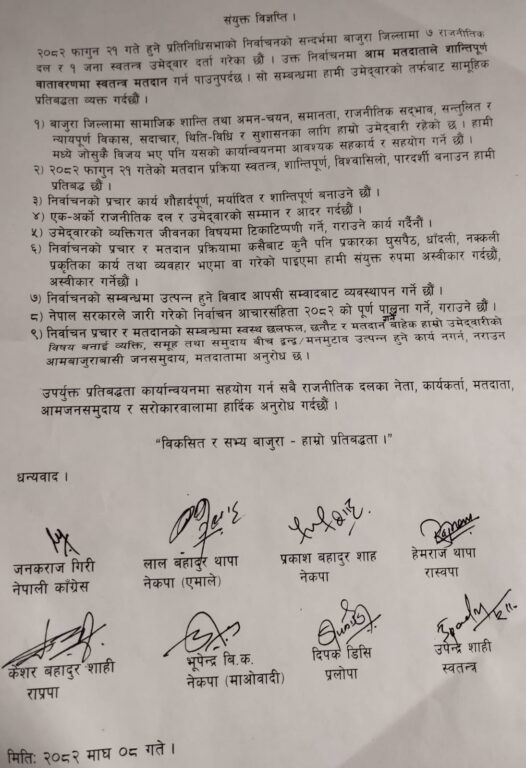 संयुक्त विज्ञप्ति ।
२०८२ फागुन २१ गते हुने प्रतिनिधिसभाको निर्वाचनको सन्दर्भमा बाजुरा जिल्लामा ७ राजनीतिक
दल र १ जना स्वतन्त्र उमेद्वार दर्ता गरेका छौं । उक्त निर्वाचनमा आम मतदाताले शान्तिपूर्ण
वातावरणमा स्वतन्त्र मतदान गर्न पाउनुपर्दछ । सो सम्बन्धमा हामी उमेद्वारको तर्फबाट सामूहिक
प्रतिबद्धता व्यक्त गर्दछौं ।
१) बाजुरा जिल्लामा सामाजिक शान्ति तथा अमन-चयन, समानता, राजनीतिक सद्भाव, सन्तुलित र
न्यायपूर्ण विकास, सदाचार, थिति-विधि र सुशासनका लागि हाम्रो उमेद्वारी रहेको छ । हामी
मध्ये जोसुकै विजय भए पनि यसको कार्यान्वयनमा आवश्यक सहकार्य र सहयोग गर्ने छौं ।
२) २०८२ फागुन २१ गतेको मतदान प्रक्रिया स्वतन्त्र, शान्तिपूर्ण, विश्वासिलो, पारदर्शी बनाउन हामी
प्रतिबद्ध छौं ।
३) निर्वाचनको प्रचार कार्य शौहार्दपूर्ण, मर्यादित र शान्तिपूर्ण बनाउने छौं ।
४) एक-अर्को राजनीतिक दल र उमेद्वारको सम्मान र आदर गर्दछौं ।
५) उमेद्वारको व्यक्तिगत जीवनका विषयमा टिकाटिप्पणी गर्ने, गराउने कार्य गर्दैनौं ।
६) निर्वाचनको प्रचार र मतदान प्रक्रियामा कसैबाट कुनै पनि प्रकारका घुसपैठ, धाँदली, नक्कली
प्रकृतिका कार्य तथा व्यवहार भएमा वा गरेको पाइएमा हामी संयुक्त रुपमा अस्वीकार गर्दछौं,
अस्वीकार गर्नेछौं ।
७) निर्वाचनको सम्बन्धमा उत्पन्न हुने विवाद आपसी सम्वादबाट व्यवस्थापन गर्ने छौं ।
८) नेपाल सरकारले जारी गरेको निर्वाचन आचारसंहिता २०८२ को पूर्ण पालना गर्ने, गराउने छौं ।
९) निर्वाचन प्रचार र मतदानको सम्बन्धमा स्वस्थ छलफल, छनौट र मतदान बाहेक हाम्रो उमेद्वारीको
विषय बनाई व्यक्ति, समूह तथा समुदाय बीच द्वन्द्व/मनमुटाव उत्पन्न हुने कार्य नगर्न, नराउन
आमबाजुराबासी जनसमुदाय, मतदातामा अनुरोध छ ।
उपर्युक्त प्रतिबद्धता कार्यान्वयनमा सहयोग गर्न सबै राजनीतिक दलका नेता, कार्यकर्ता, मतदाता,
आमजनसमुदाय र सरोकारवालामा हार्दिक अनुरोध गर्दछौं ।
"विकसित र सभ्य बाजुरा - हाम्रो प्रतिबद्धता ।"
धन्यवाद ।
जनकराज गिरी
नेपाली काँग्रेस
लाल बहादुर थापा
नेकपा (एमाले)
प्रकाश बहादुर शाह
नेकपा
हेमराज थापा
रास्वपा
केशर बहादुर शाही
राप्रपा
भूपेन्द्र बि.क.
नेकपा (माओवादी)
दिपक डिसि
प्रलोपा
उपेन्द्र शाही
स्वतन्त्र
मिति: २०८२ माघ ०८ गते ।